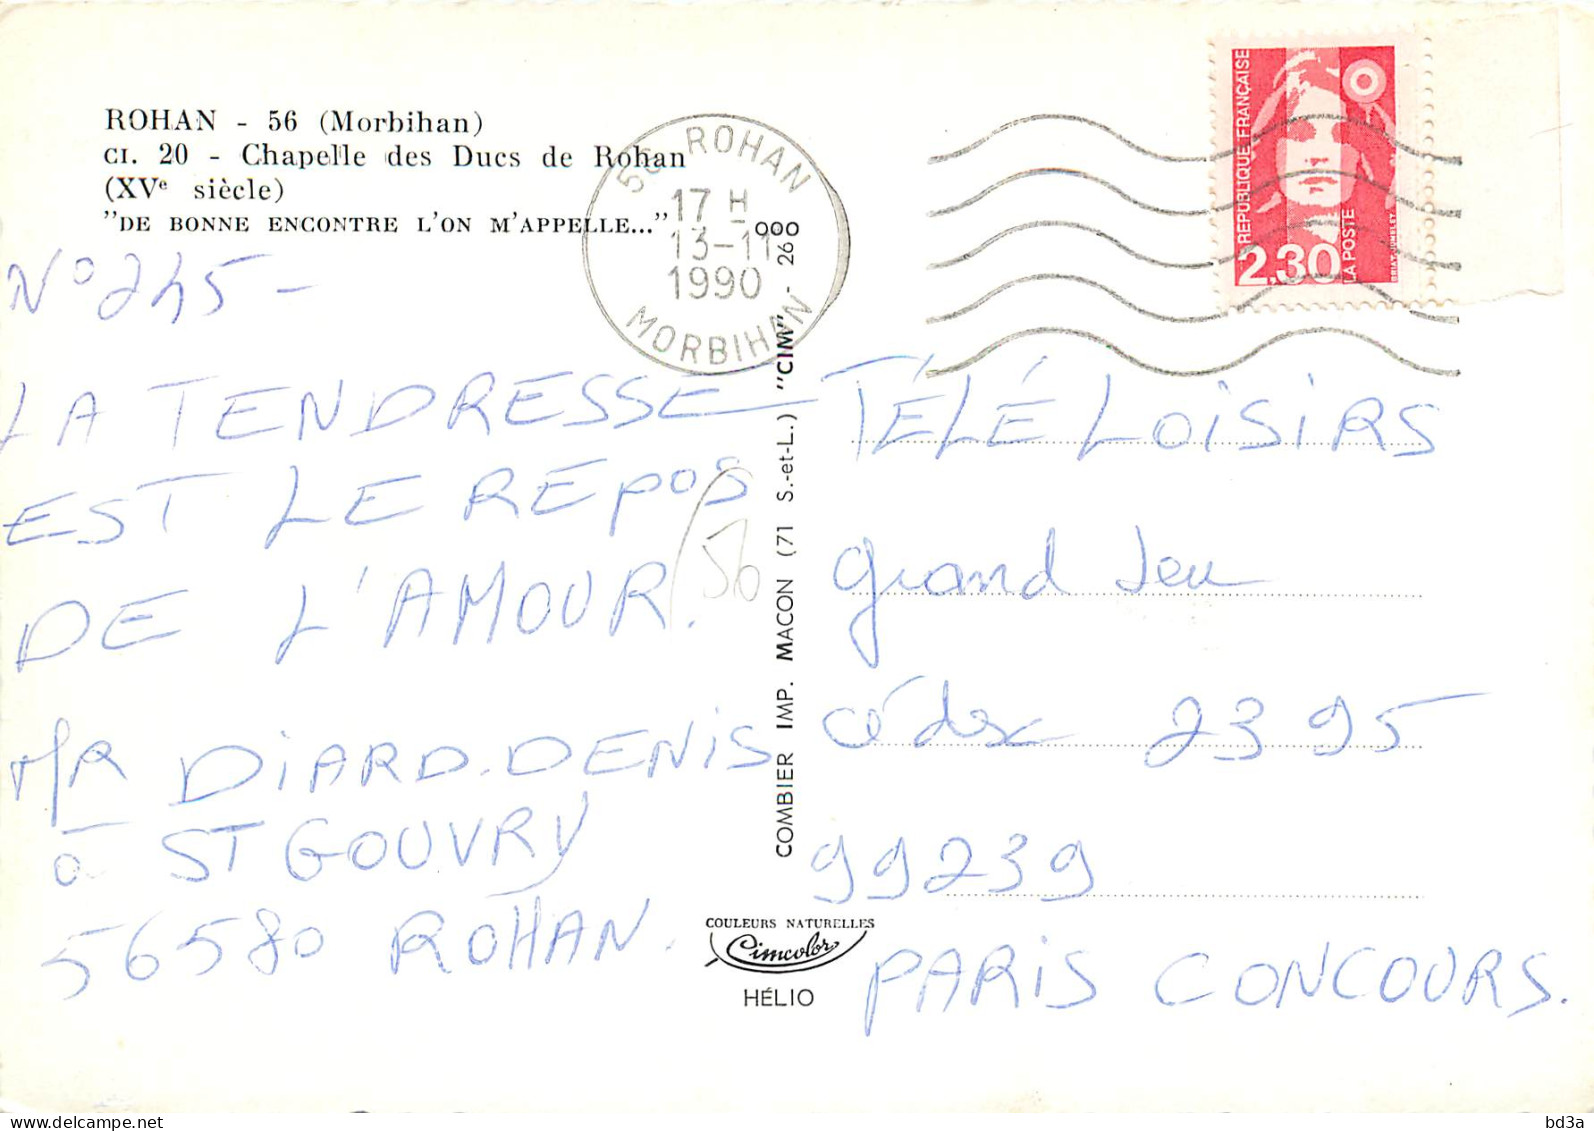 ROHAN - 56 (Morbihan)
CI. 20 - Chapelle des Ducs de Rohan
(XVe siècle)
"DE BONNE ENCONTRE L'ON M'APPELLE..."
56 ROHAN
17 H
13-11
1990
MORBIHAN
REPUBLIQUE FRANÇAISE
2,30
LA POSTE
N° 245 -
LA TENDRESSE
EST LE REPOS
DE L'AMOUR.
56
MR DIARD. DENIS
à ST GOUVRY
56580 ROHAN.
COMBIER IMP. MACON (71 S.-et-L.) "CIM" - 26
TÉLÉ LOISIRS
grand Jeu
cédex 2395
99239
PARIS CONCOURS.
COULEURS NATURELLES
Cimcolor
HÉLIO
bd3a